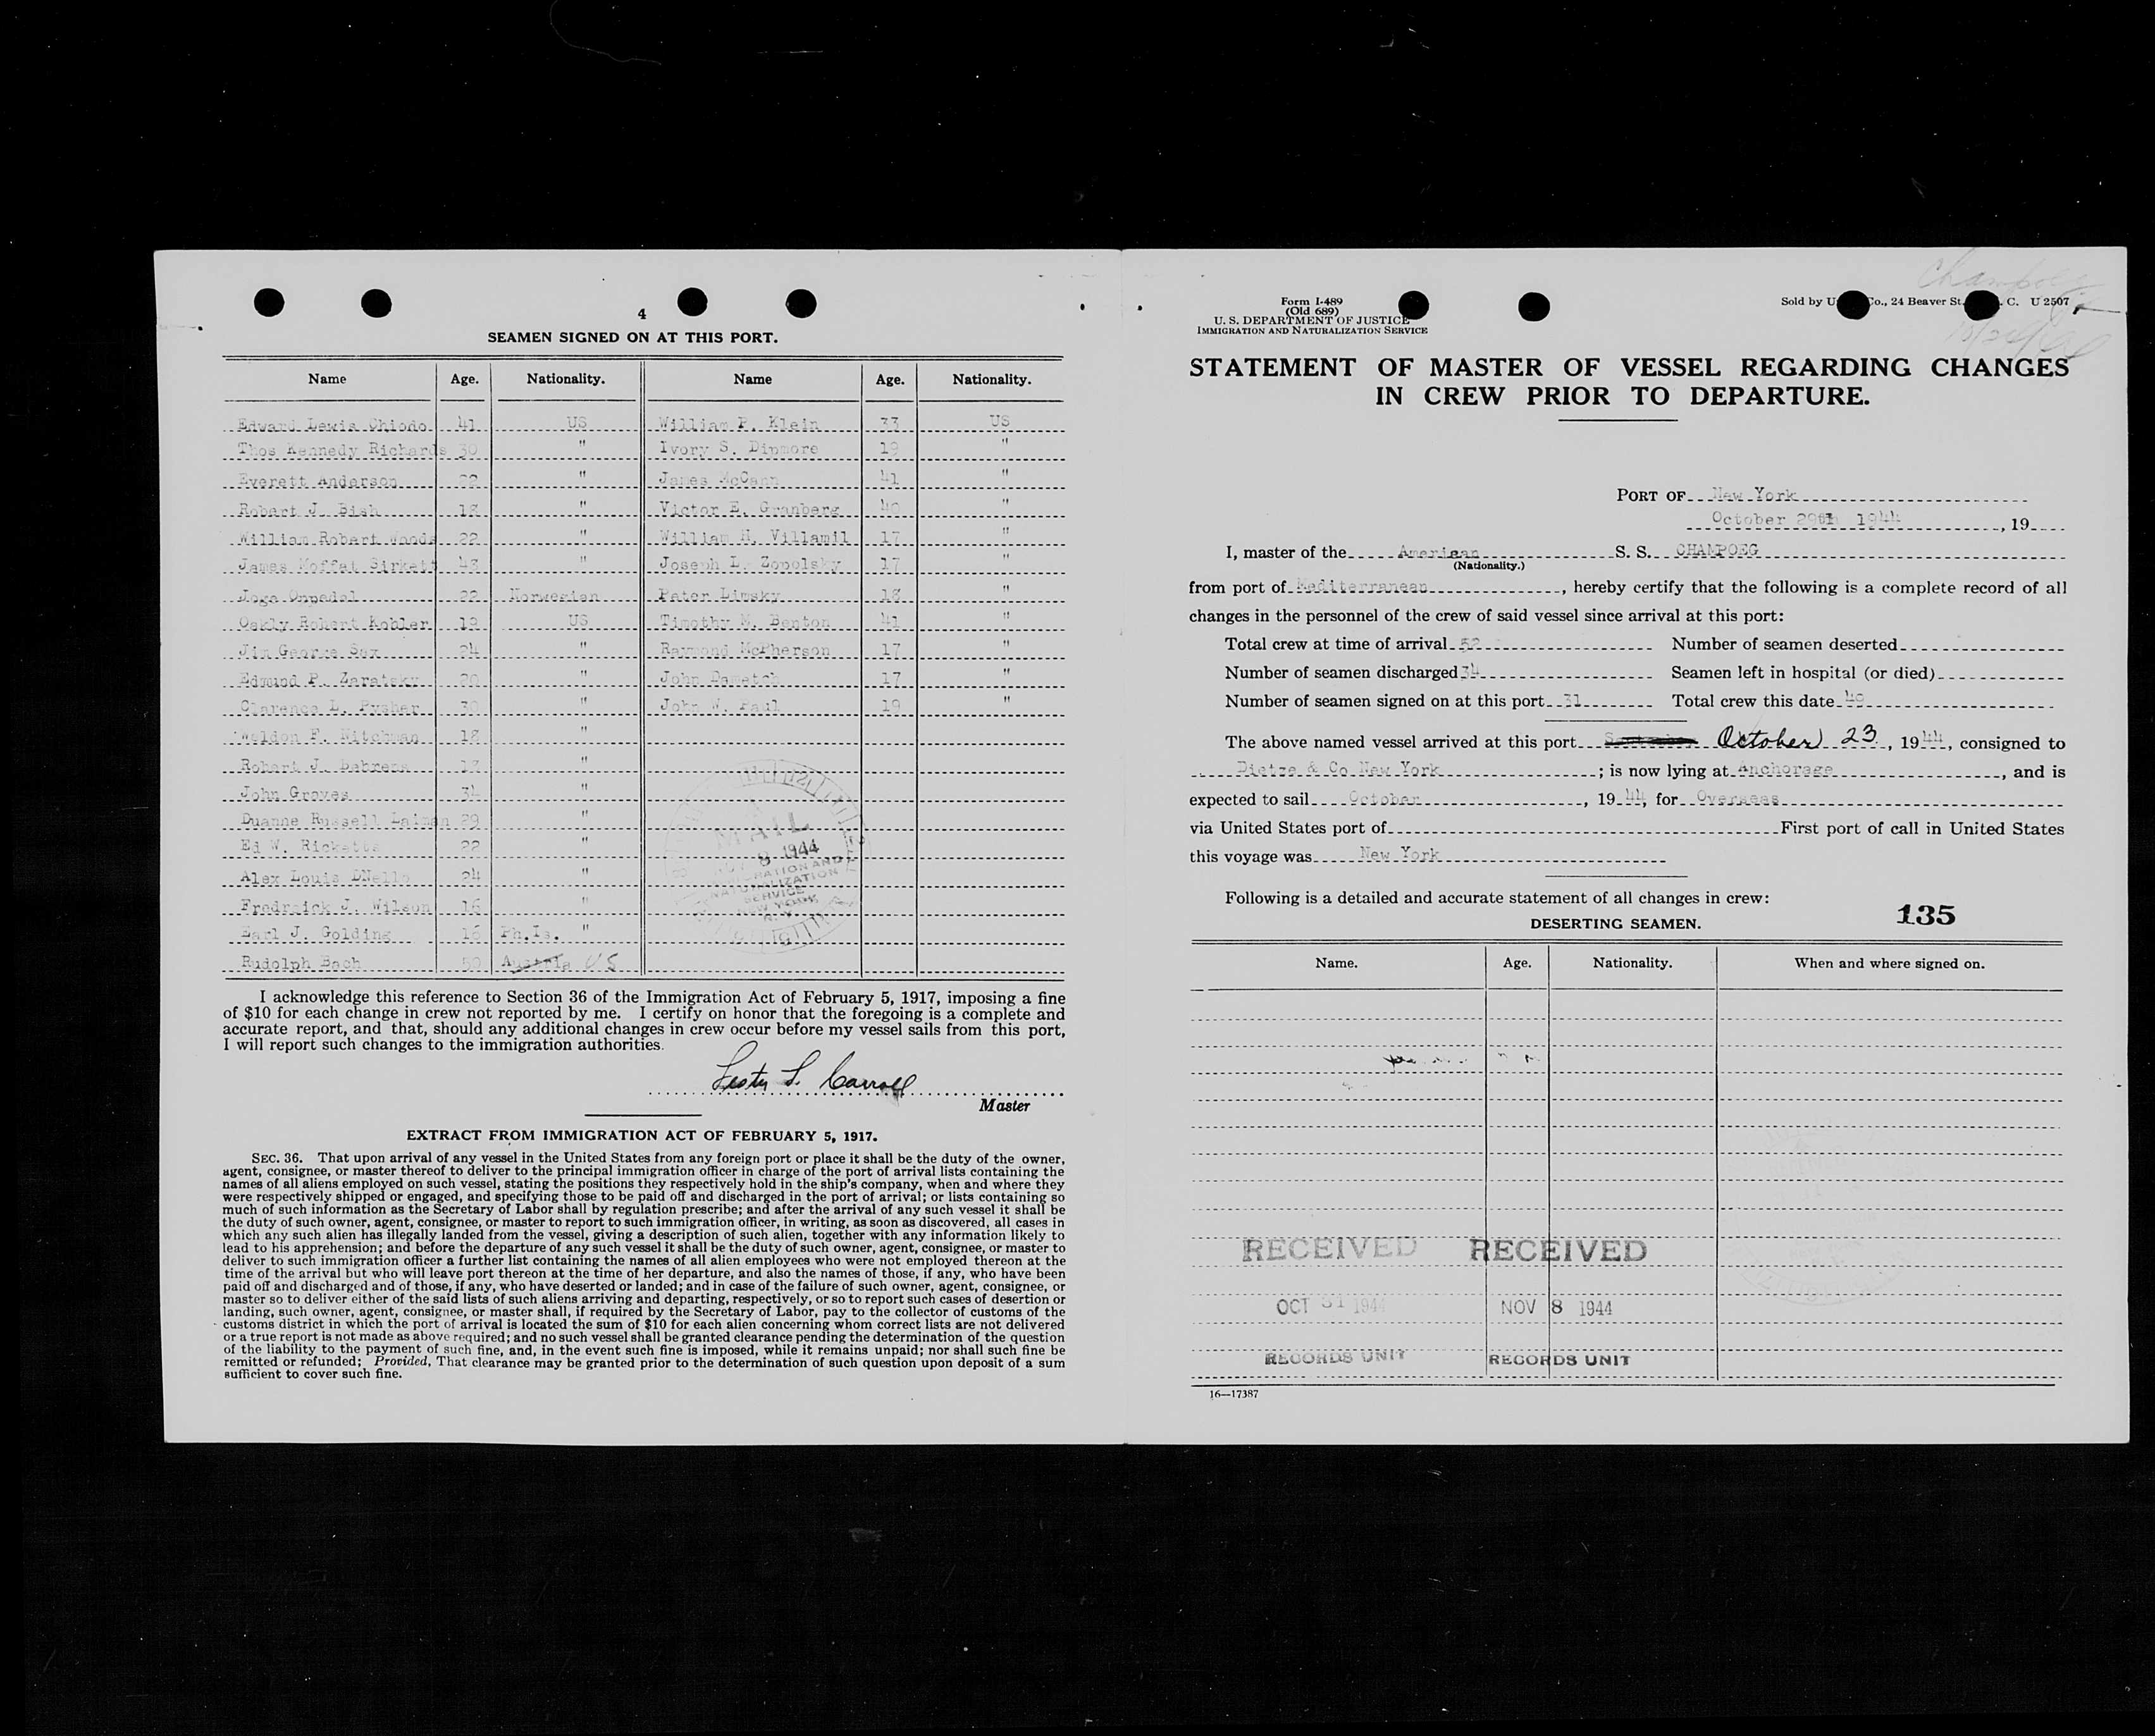 4
SEAMEN SIGNED ON AT THIS PORT.
Name Age. Nationality. Name Age. Nationality.
Edward Lewis Chiodo 41 US William P. Klein 33 US
Thos Kennedy Richards 30 " Ivory S. Dinmore 19 "
Everett Anderson 22 " James McCann 41 "
Robert J. Bish 18 " Victor E. Granberg 40 "
William Robert Woods 22 " William H. Villamil 17 "
James Moffat Sirkett 43 " Joseph L. Zopolsky 17 "
22 Norwegian Peter Limsky 18 "
Oakly Robert Kohler 19 US Timothy M. Benton 41 "
Jim George Sax 24 " Raymond McPherson 17 "
Edmund P. Zaratsky 20 " John 17 "
Clarence L. Pysher 30 " John W. Paul 19 "
Weldon F. Nitchman 18 "
Robert J. "
John Groves 34 "
Duanne Russell Laiman 29 "
Ed W. Ricketts 22 "
Alex Louis DNello 24 "
Fredreick J. Wilson 16 "
Earl J. Golding 16 Ph.Is. "
Rudolph Bach 50 Austria US
MAIL
8 1944
IMMIGRATION AND
NATURALIZATION
SERVICE
NEW YORK,
N. Y.
I acknowledge this reference to Section 36 of the Immigration Act of February 5, 1917, imposing a fine
of $10 for each change in crew not reported by me. I certify on honor that the foregoing is a complete and
accurate report, and that, should any additional changes in crew occur before my vessel sails from this port,
I will report such changes to the immigration authorities.
Lester L. Carroll
Master
EXTRACT FROM IMMIGRATION ACT OF FEBRUARY 5, 1917.
SEC. 36. That upon arrival of any vessel in the United States from any foreign port or place it shall be the duty of the owner,
agent, consignee, or master thereof to deliver to the principal immigration officer in charge of the port of arrival lists containing the
names of all aliens employed on such vessel, stating the positions they respectively hold in the ship's company, when and where they
were respectively shipped or engaged, and specifying those to be paid off and discharged in the port of arrival; or lists containing so
much of such information as the Secretary of Labor shall by regulation prescribe; and after the arrival of any such vessel it shall be
the duty of such owner, agent, consignee, or master to report to such immigration officer, in writing, as soon as discovered, all cases in
which any such alien has illegally landed from the vessel, giving a description of such alien, together with any information likely to
lead to his apprehension; and before the departure of any such vessel it shall be the duty of such owner, agent, consignee, or master to
deliver to such immigration officer a further list containing the names of all alien employees who were not employed thereon at the
time of the arrival but who will leave port thereon at the time of her departure, and also the names of those, if any, who have been
paid off and discharged and of those, if any, who have deserted or landed; and in case of the failure of such owner, agent, consignee, or
master so to deliver either of the said lists of such aliens arriving and departing, respectively, or so to report such cases of desertion or
landing, such owner, agent, consignee, or master shall, if required by the Secretary of Labor, pay to the collector of customs of the
customs district in which the port of arrival is located the sum of $10 for each alien concerning whom correct lists are not delivered
or a true report is not made as above required; and no such vessel shall be granted clearance pending the determination of the question
of the liability to the payment of such fine, and, in the event such fine is imposed, while it remains unpaid; nor shall such fine be
remitted or refunded; Provided, That clearance may be granted prior to the determination of such question upon deposit of a sum
sufficient to cover such fine.
Form I-489
(Old 689)
U. S. DEPARTMENT OF JUSTICE
IMMIGRATION AND NATURALIZATION SERVICE
Sold by U Co., 24 Beaver St. C. U 2507
Champoeg
STATEMENT OF MASTER OF VESSEL REGARDING CHANGES
IN CREW PRIOR TO DEPARTURE.
PORT OF New York
October 29th 1944, 19
I, master of the American S. S. CHAMPOEG
(Nationality.)
from port of Mediterranean, hereby certify that the following is a complete record of all
changes in the personnel of the crew of said vessel since arrival at this port:
Total crew at time of arrival 52 Number of seamen deserted
Number of seamen discharged 34 Seamen left in hospital (or died)
Number of seamen signed on at this port 31 Total crew this date 49
The above named vessel arrived at this port October 23, 1944, consigned to
Dietze & Co New York; is now lying at Anchorage, and is
expected to sail October, 1944, for Overseas
via United States port of First port of call in United States
this voyage was New York
Following is a detailed and accurate statement of all changes in crew:
DESERTING SEAMEN.
135
Name. Age. Nationality. When and where signed on.
RECEIVED RECEIVED
OCT 31 1944 NOV 8 1944
RECORDS UNIT RECORDS UNIT
16—17387